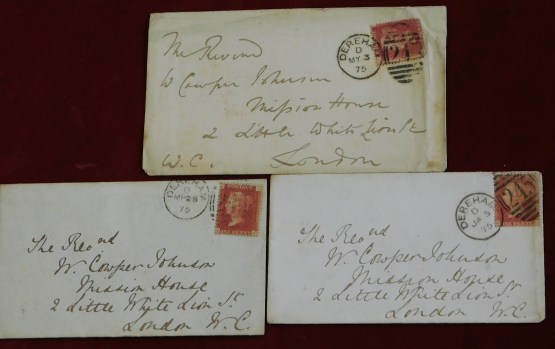 The Revd
W Cowper Johnson
Mission House
2 Little White Lion St
W.C. London
DEREHAM
D
MY 3
75
24
The Revd
W. Cowper Johnson
Mission House
2 Little White Lion St.
London W.C.
DEREHAM
D
28
75
The Revd
W. Cowper Johnson
Mission House
2 Little White Lion St
London W.C.
DEREHAM
D
75
245